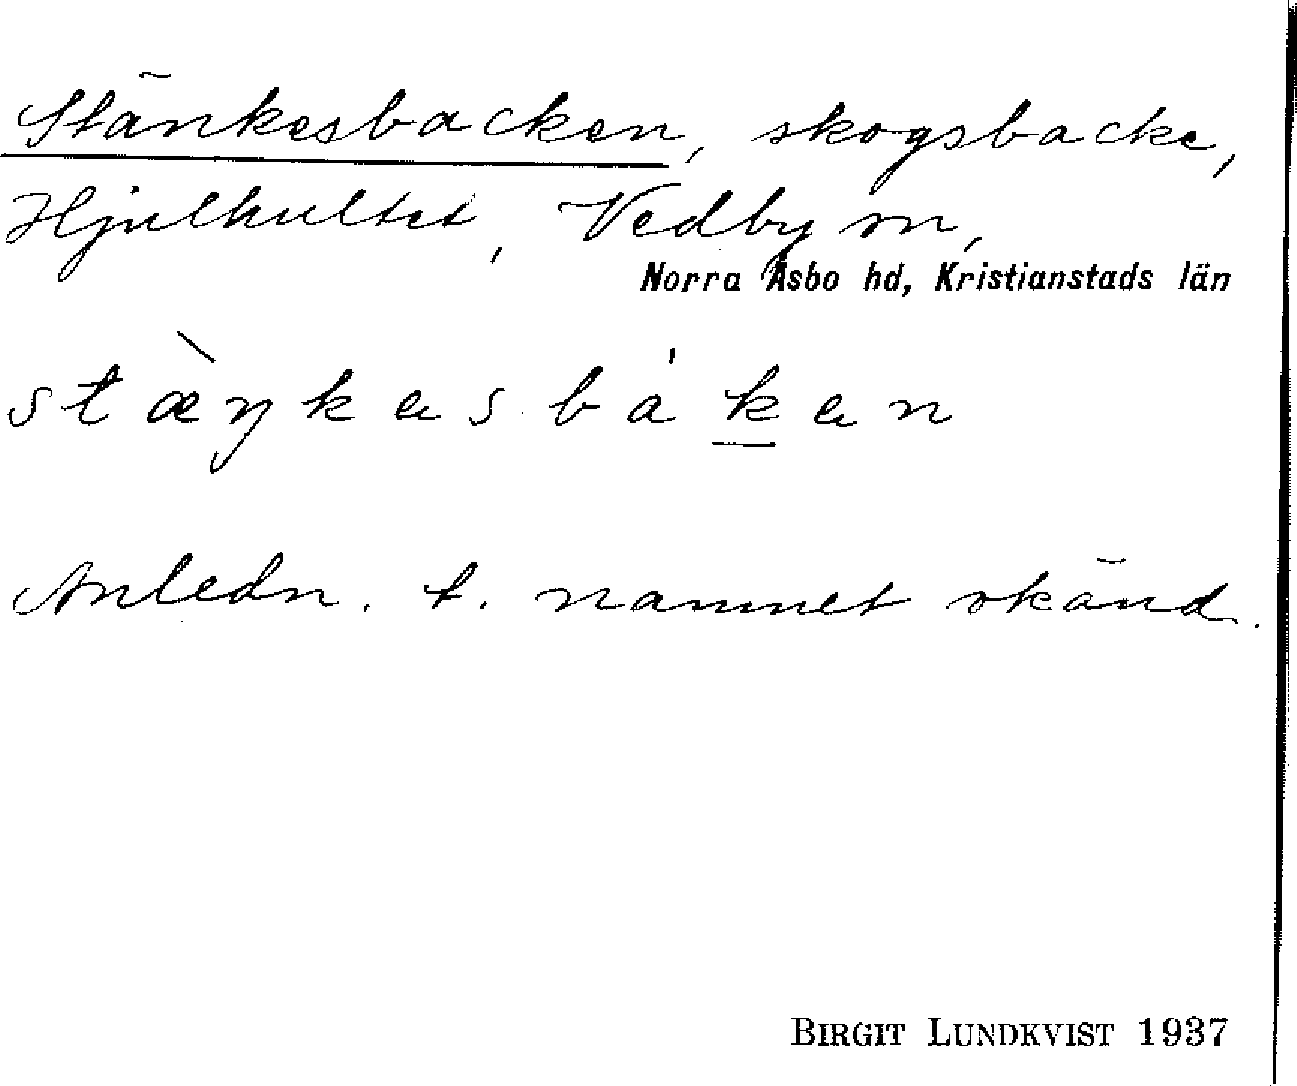 Stänkesbacken, skogsbacke,
Hjulhultet, Vedby sn,
Norra Åsbo hd, Kristianstads län
stæ̀ŋkasbákan
Anledn. t. namnet okänd.
BIRGIT LUNDKVIST 1937